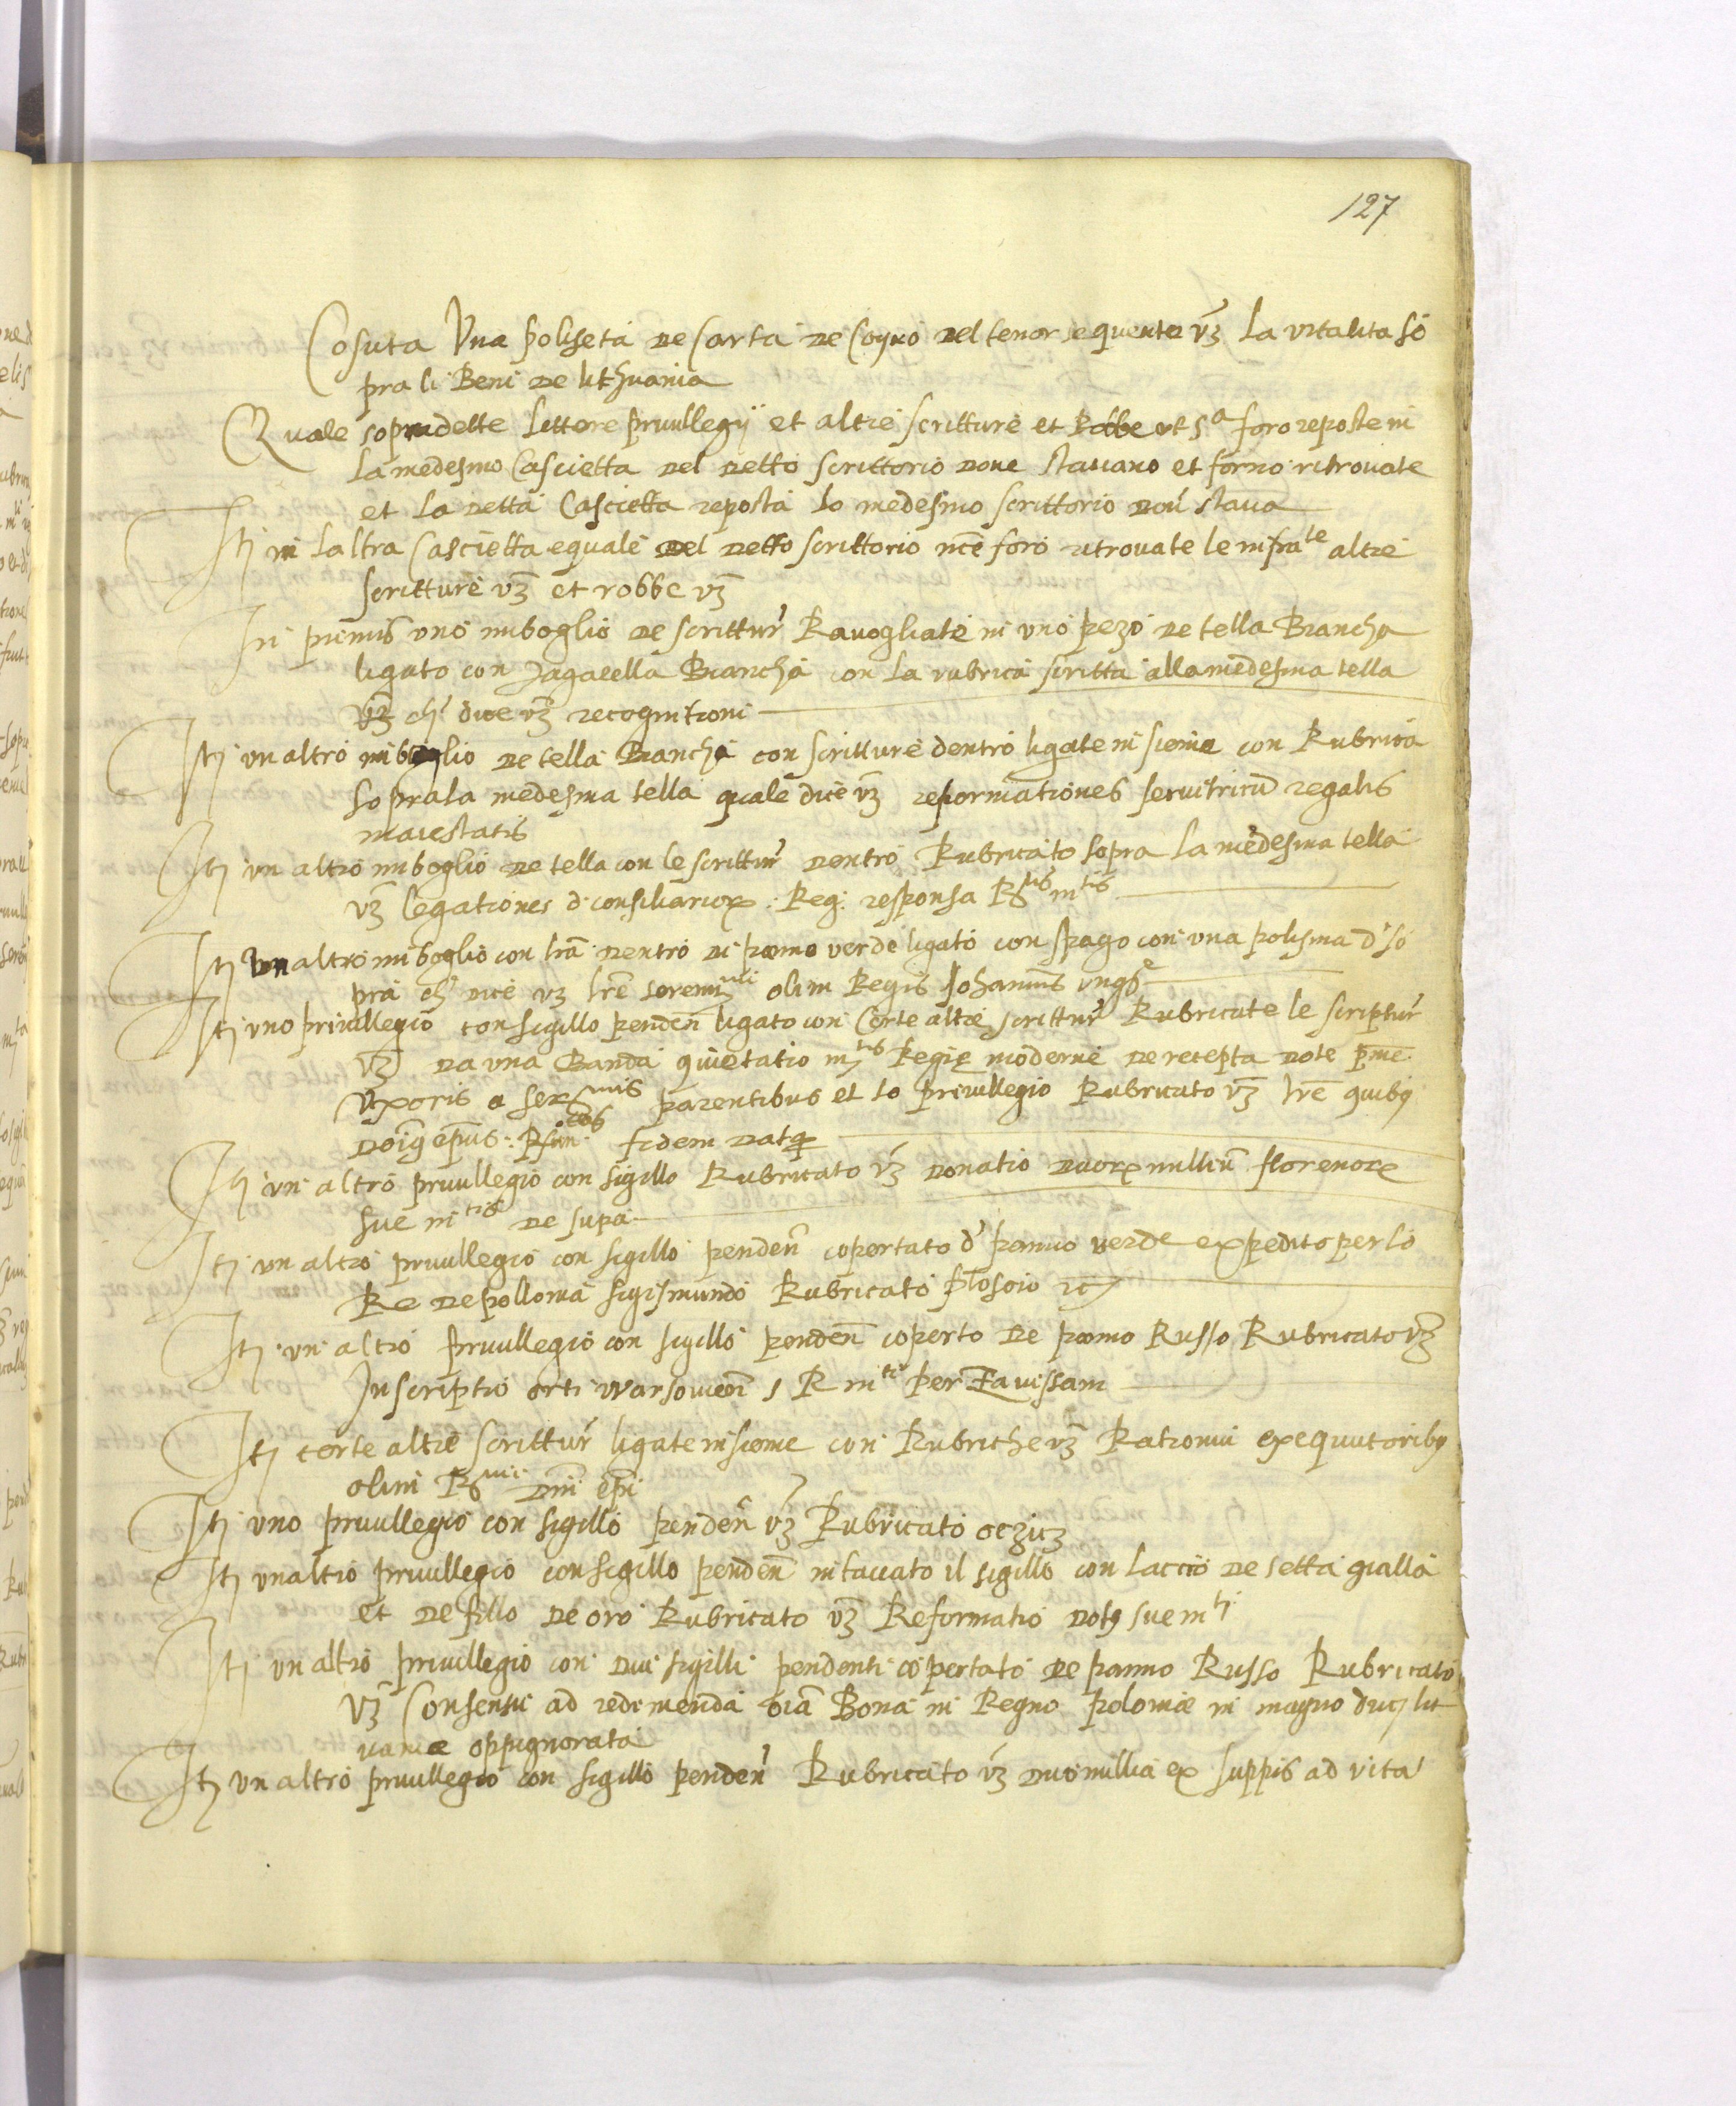 127
Cosuta Una poliseta de Carta de Coyro del tenor sequente vz La vitalita so
pra li Beni de lithuania
Quale sopradette Littere privillegij et altre scritture et Robbe ut s.a foro reposte in
La medesmo Cascietta del detto scrittorio dove stavano et forno ritrovate
et La detta Cascietta reposta lo medesmo scrittorio dou stava
It in Laltra Cascietta equale del detto scrittorio nce foro ritrovate le infra.te altre
scritture vz et robbe vz
In primis uno imboglio de scrittur Ravogliate in uno pezo de tella Biancha
ligato con zagarella Biancha con la rubrica scritta alla medesma tella
ch dice vz recognitioni
It un altro imboglio de tella Biancha con scritture dentro ligate insieme con Rubrica
sopra la medesma tella quale dice vz reformationes servitricu regalis
maiestatis
It un altro imboglio de tella con le scrittur dentro Rubricato sopra La medesma tella
vz legationes d consiliarior. Reg. responsa R mtis
It un altro imboglio con lra dentro di panno verde ligato con spago con una polisina d so
pra ch dice vz lre seremi olim Regis Johannis ung.e
It uno privillegio con sigillo penden ligato con Certe altre scrittur Rubricate le scriptur
vz da una Banda quietatio mtis Regie moderne de recepta dote pme
Uxoris a ser.mis parentibus et lo privillegio Rubricato vz lre quibq
epus: fidem datq
It un altro privillegio con sigillo Rubricato vz donatio duor milliu florenor
sue mtis de supa
It un altro privillegio con sigillo penden copertato d panno verde expedito per lo
Re de pollonia sigismundo Rubricato plosoio
It un altro privillegio con sigillo penden coperto de panno Russo Rubricato vz
Inscriptio orti warsovien s R mti per Zavissam
It certe altre scrittur ligate insieme con Rubriche vz Rationui exequutoribq
olim R.mi Dni epi
It uno privillegio con sigillo penden vz Rubricato
It un altro privillegio con sigillo penden intaccato il sigillo con Laccio de setta gialla
et de fillo de oro Rubricato vz Reformatio dotq sue mti
It un altro privillegio con dui sigilli pendenti copertato de panno Russo Rubricato
vz Consensu ad redimenda oia Bona in Regno polonie in magno duc lit
vaniae oppignorata
It un altro privillegio con sigillo penden Rubricato vz duo millia ex suppis ad vita